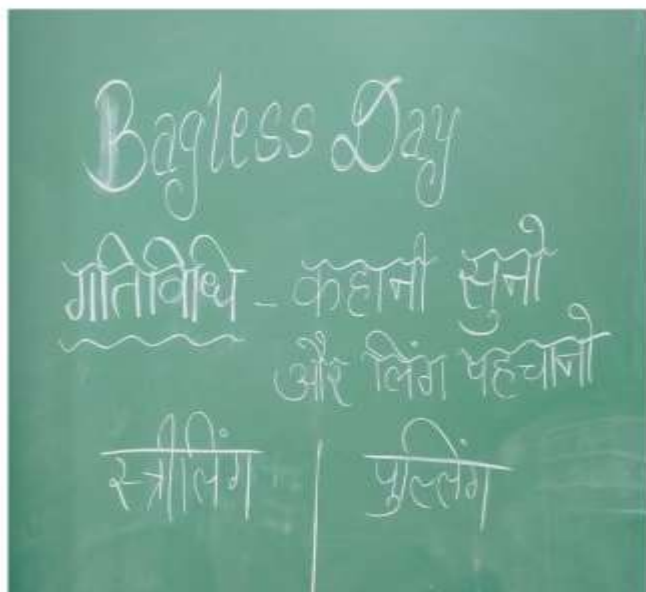 Bagless Day
गतिविधि - कहानी सुनो
और लिंग पहचानो
स्त्रीलिंग | पुल्लिंग